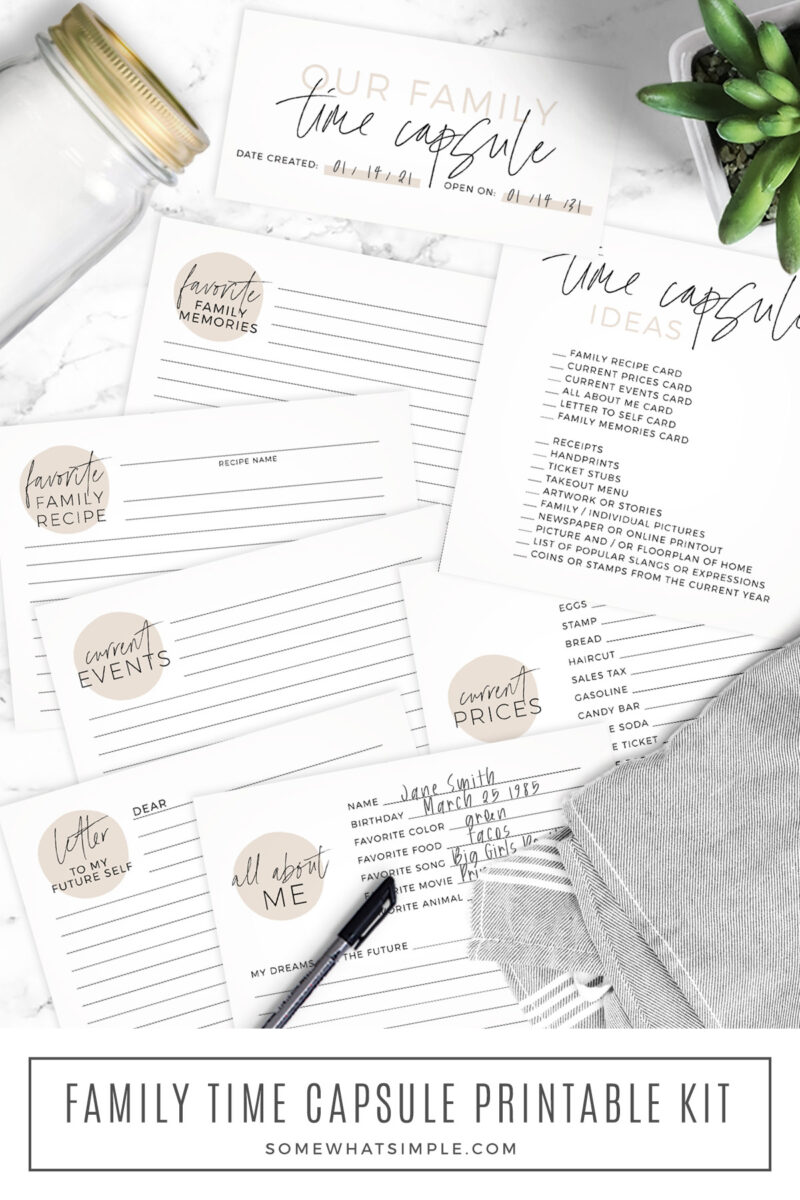 OUR FAMILY
time capsule
DATE CREATED: 01/14/21 OPEN ON: 01/14/31
favorite
FAMILY
MEMORIES
time capsule
IDEAS
__ FAMILY RECIPE CARD
__ CURRENT PRICES CARD
__ CURRENT EVENTS CARD
__ ALL ABOUT ME CARD
__ LETTER TO SELF CARD
__ FAMILY MEMORIES CARD
__ RECEIPTS
__ HANDPRINTS
__ TICKET STUBS
__ TAKEOUT MENU
__ ARTWORK OR STORIES
__ FAMILY / INDIVIDUAL PICTURES
__ NEWSPAPER OR ONLINE PRINTOUT
__ PICTURE AND / OR FLOORPLAN OF HOME
__ LIST OF POPULAR SLANGS OR EXPRESSIONS
__ COINS OR STAMPS FROM THE CURRENT YEAR
favorite
FAMILY
RECIPE
RECIPE NAME
current
EVENTS
current
PRICES
EGGS
STAMP
BREAD
HAIRCUT
SALES TAX
GASOLINE
CANDY BAR
E SODA
E TICKET
letter
TO MY
FUTURE SELF
DEAR
all about
ME
NAME Jane Smith
BIRTHDAY March 25 1985
FAVORITE COLOR green
FAVORITE FOOD tacos
FAVORITE SONG Big Girls D
RITE MOVIE
ORITE ANIMAL
MY DREAMS THE FUTURE
FAMILY TIME CAPSULE PRINTABLE KIT
SOMEWHATSIMPLE.COM